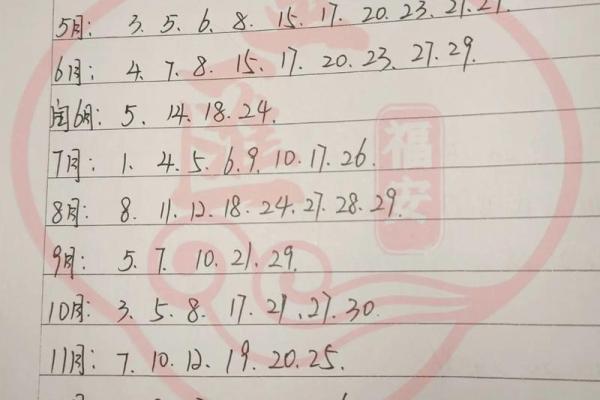 5月: 3. 5. 6. 8. 15. 17. 20. 23. 21. 27.
6月: 4. 7. 8. 15. 17. 20. 23. 27. 29.
闰6月: 5. 14. 18. 24.
7月: 1. 4. 5. 6. 9. 10. 17. 26.
8月: 8. 11. 12. 18. 24. 27. 28. 29.
9月: 5. 7. 10. 21. 29.
10月: 3. 5. 8. 17. 21. 27. 30.
11月: 7. 10. 12. 19. 20. 25.
福安